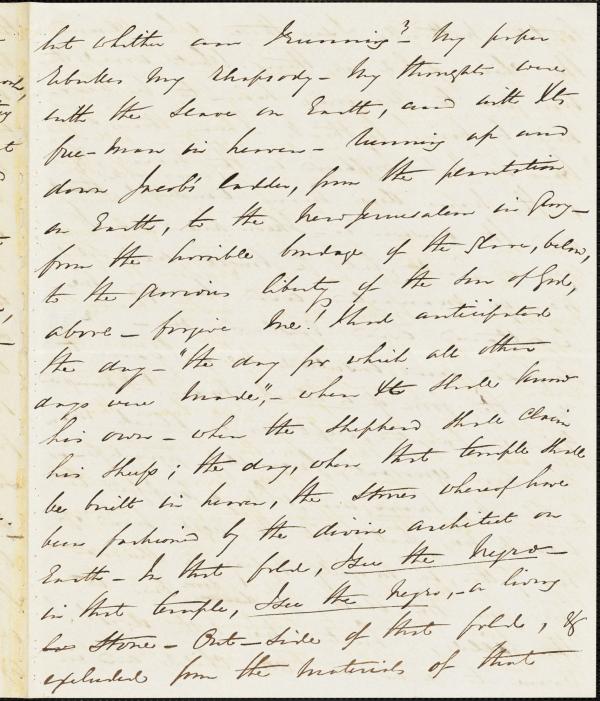 but whither am I running? – My paper
rebukes my rhapsody – My thoughts were
with the slave on Earth, and with Xt's
free-man in heaven – running up and
down Jacob's ladder, from the plantation
on Earth, to the New Jerusalem in glory –
from the horrible bondage of the slave, below,
to the glorious liberty of the son of God,
above – forgive me! I had anticipated
the day – "the day for which all other
days were made", – when Xt shall know
his own – when the shepherd shall claim
his sheep; the day, when that temple shall
be built in heaven, the stones whereof have
been fashioned by the divine architect on
Earth – In that fold, I see the Negro –
in that temple, I see the Negro, – a living
stone – Out-side of that fold, &
excluded from the materials of that